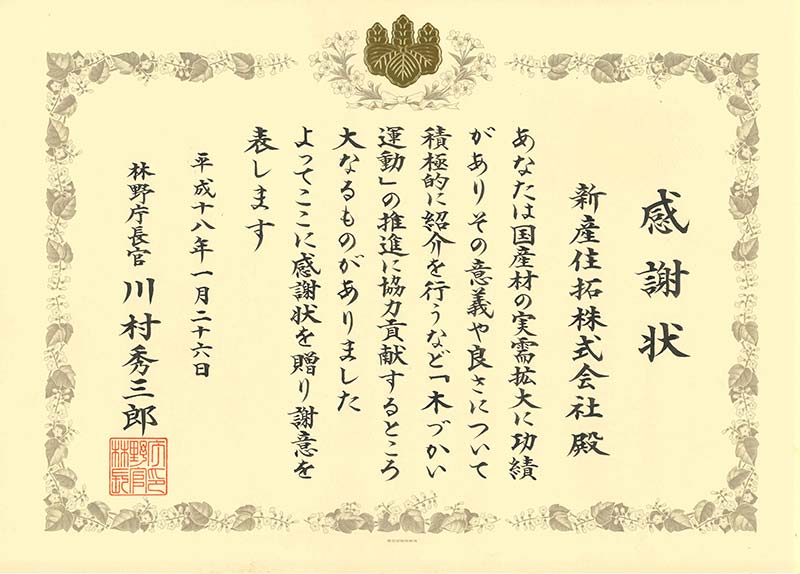 感謝状
新産住拓株式会社殿
あなたは国産材の実需拡大に功績
がありその意義や良さについて
積極的に紹介を行うなど「木づかい
運動」の推進に協力貢献するところ
大なるものがありました
よってここに感謝状を贈り謝意を
表します
平成十八年一月二十六日
林野庁長官 川村秀三郎